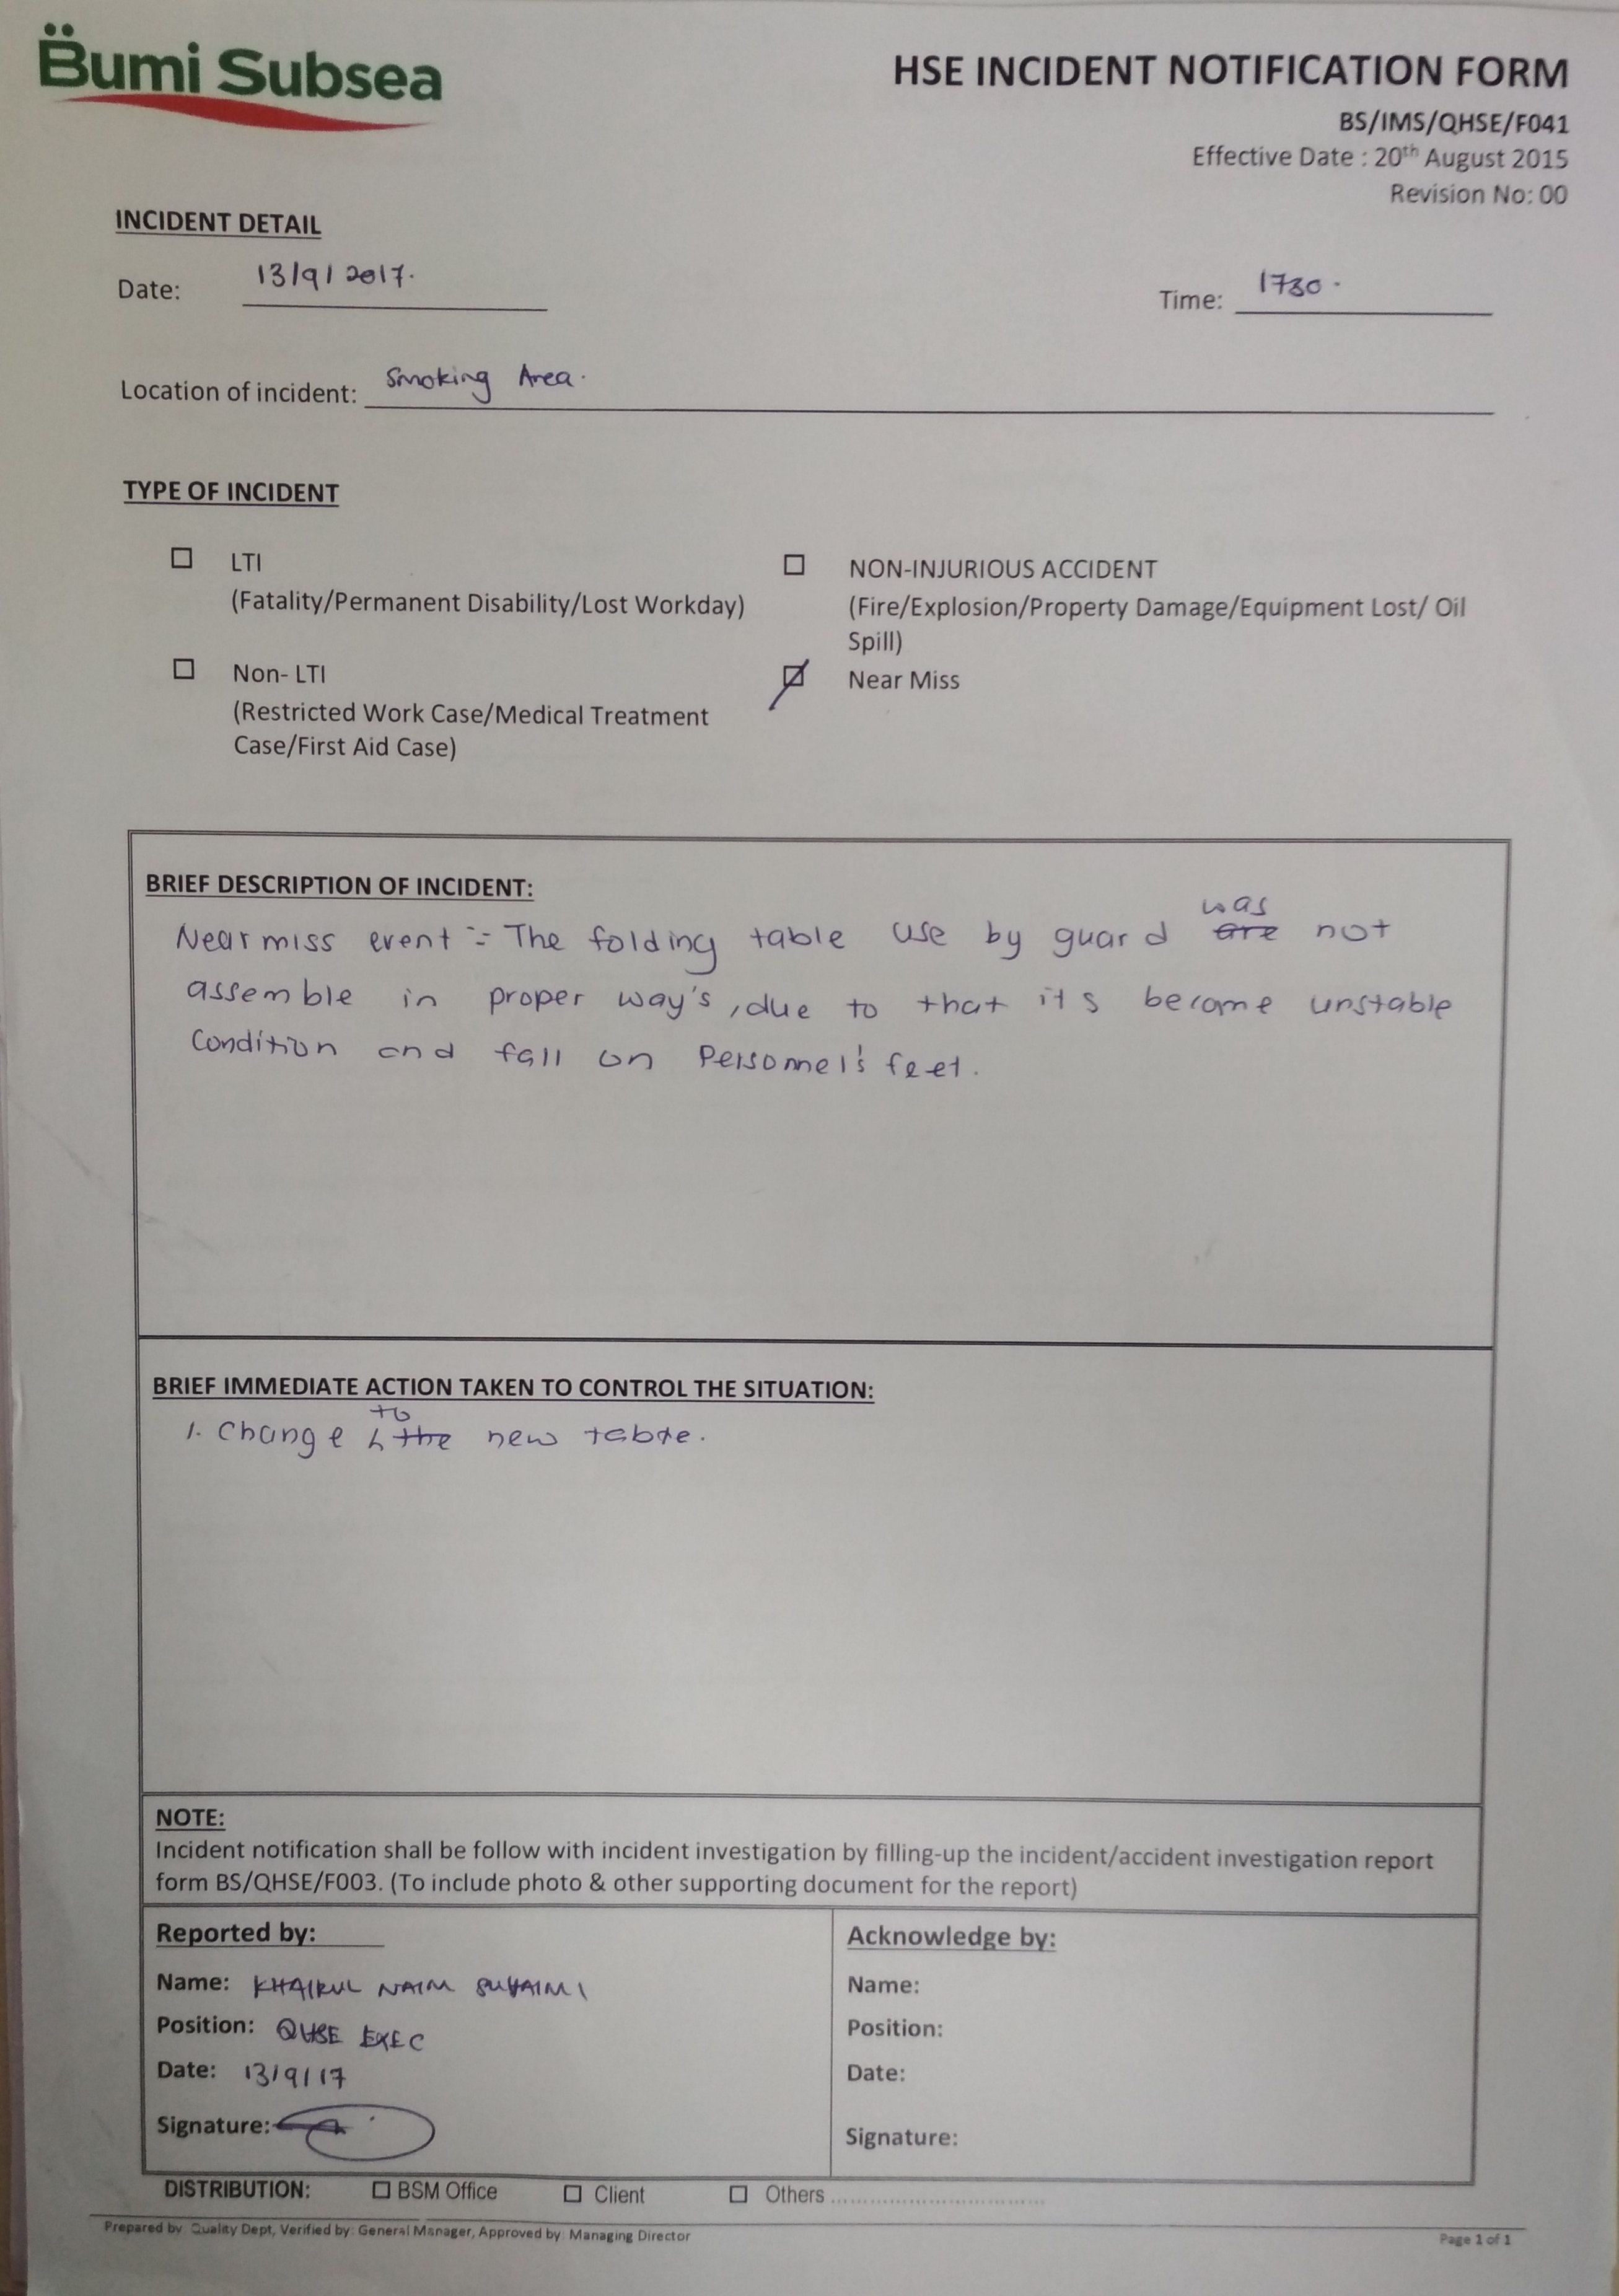 Bumi Subsea
HSE INCIDENT NOTIFICATION FORM
BS/IMS/QHSE/F041
Effective Date : 20th August 2015
Revision No: 00
INCIDENT DETAIL
Date: 13/9/2017.
Time: 1730.
Location of incident: Smoking Area.
TYPE OF INCIDENT
LTI
(Fatality/Permanent Disability/Lost Workday)
NON-INJURIOUS ACCIDENT
(Fire/Explosion/Property Damage/Equipment Lost/ Oil
Spill)
Non- LTI
(Restricted Work Case/Medical Treatment
Case/First Aid Case)
Near Miss
BRIEF DESCRIPTION OF INCIDENT:
was
Near miss event :- The folding table use by guard are not
assemble in proper way's, due to that it's become unstable
condition and fall on Personnel's feet.
BRIEF IMMEDIATE ACTION TAKEN TO CONTROL THE SITUATION:
to
1. Change the new table.
NOTE:
Incident notification shall be follow with incident investigation by filling-up the incident/accident investigation report
form BS/QHSE/F003. (To include photo & other supporting document for the report)
Reported by:
Name: KHAIRUL NAIM SUHAIMI
Position: QHSE EXEC
Date: 13/9/17
Signature:
Acknowledge by:
Name:
Position:
Date:
Signature:
DISTRIBUTION: BSM Office Client Others ................................
Prepared by: Quality Dept, Verified by: General Manager, Approved by: Managing Director
Page 1 of 1